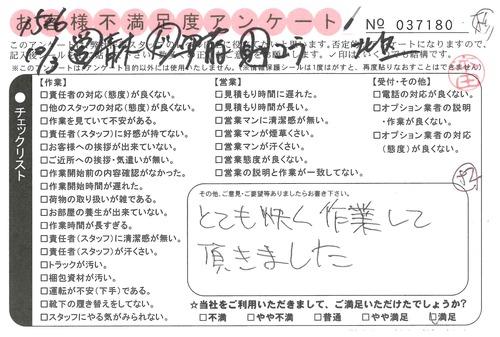 お客様不満足度アンケート
No 037180
【作業】
□責任者の対応(態度)が良くない。
□他のスタッフの対応(態度)が良くない。
□作業を見ていて不安がある。
□責任者(スタッフ)に好感が持てない。
□お客様への挨拶が出来ていない。
□ご近所への挨拶・気遣いが無い。
□作業開始前の内容確認がなかった。
□作業開始時間が遅れた。
□荷物の取り扱いが雑である。
□お部屋の養生が出来ていない。
□作業時間が長すぎる。
□責任者(スタッフ)に清潔感が無い。
□責任者(スタッフ)が汗くさい。
□トラックが汚い。
□梱包資材が汚い。
□運転が不安(下手)である。
□靴下の履き替えをしてない。
□スタッフにやる気がみられない。
【営業】
□見積もり時間に遅れた。
□見積もり時間が長い。
□営業マンに清潔感が無い。
□営業マンが煙草くさい。
□営業マンが汗くさい。
□営業態度が良くない。
□営業の説明と作業が一致してない。
【受付・その他】
□電話の対応が良くない。
□オプション業者の説明
・作業が良くない。
□オプション業者の対応
(態度)が良くない。
●チェックリスト
その他、ご意見・ご要望等ありましたらお書き下さい。
とても快く作業して
頂きました
☆当社をご利用いただきまして、ご満足いただけたでしょうか?
□不満 □やや不満 □普通 □やや満足 □満足